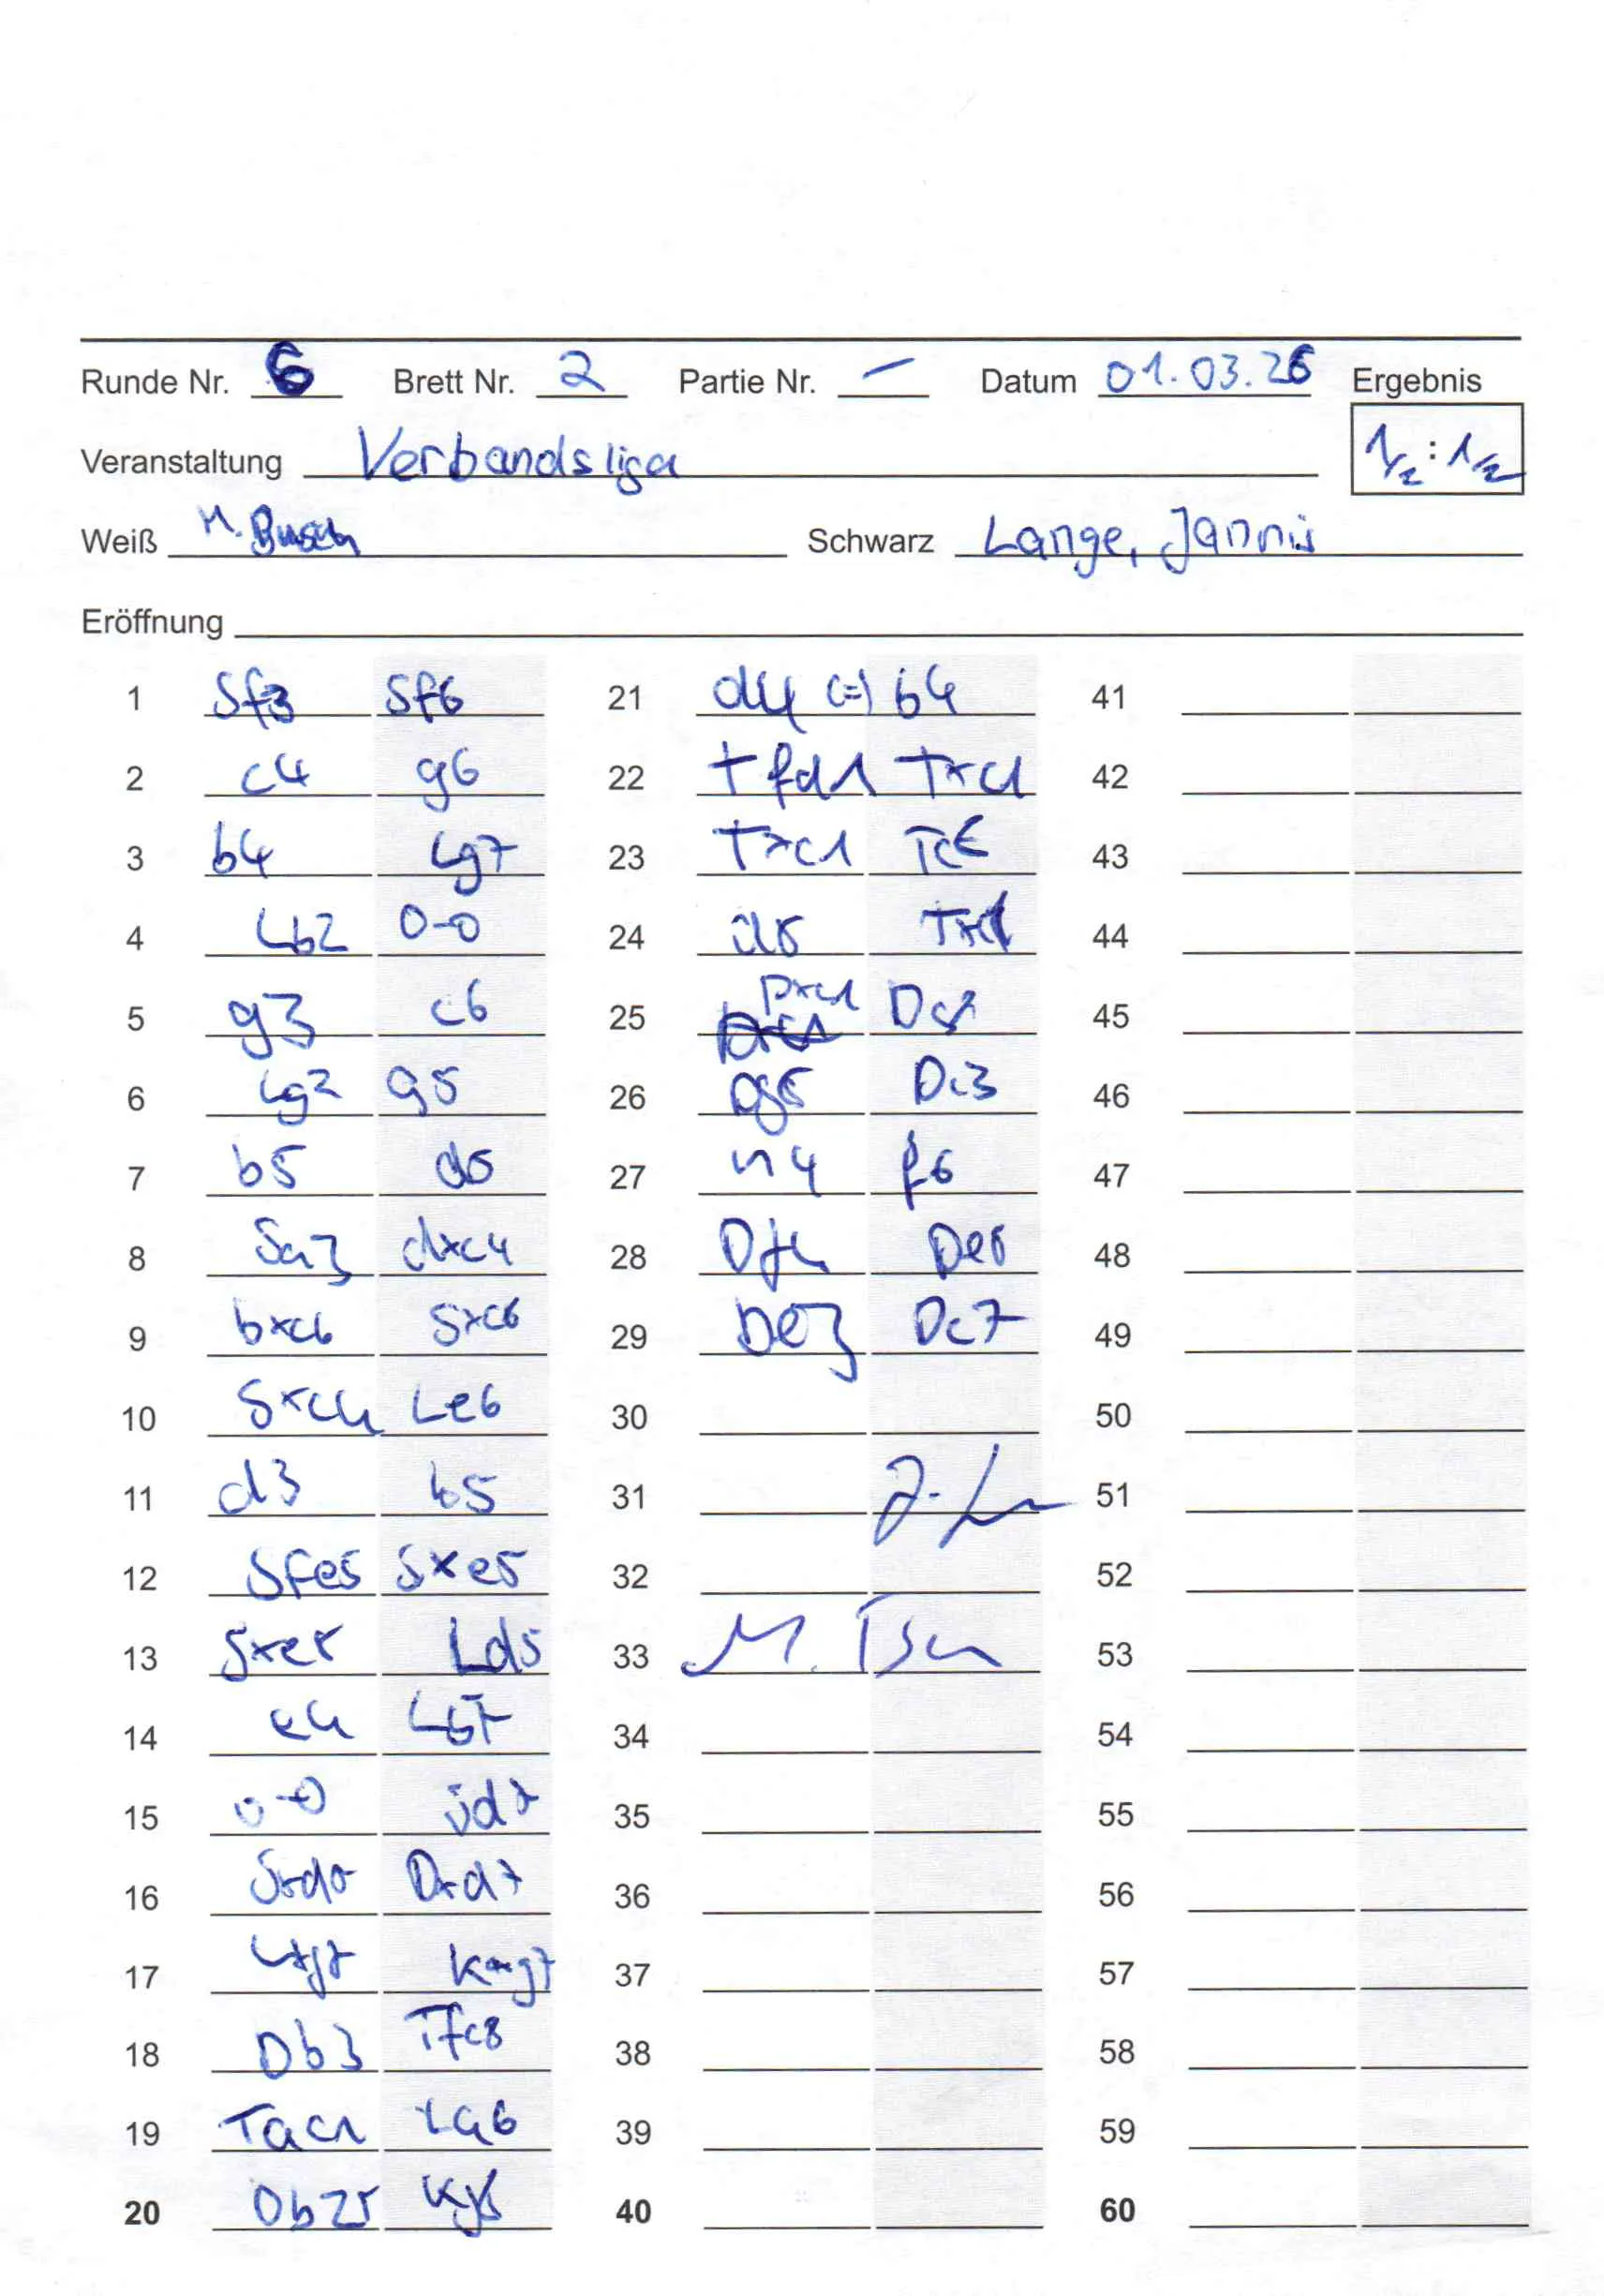 Runde Nr. 6 Brett Nr. 2 Partie Nr. – Datum 01.03.26 Ergebnis
Veranstaltung Verbandsliga 1/2:1/2
Weiß M. Busch Schwarz Lange, Jannis
Eröffnung
1 Sf3 Sf6
2 c4 g6
3 b4 Lg7
4 Lb2 0-0
5 g3 c6
6 Lg2 a5
7 b5 d5
8 Sa3 dxc4
9 bxc6 Sxc6
10 Sxc4 Le6
11 d3 b5
12 Sfe5 Sxe5
13 Sxe5 Ld5
14 e4 Lb7
15 0-0 Sd7
16 Sxd7 Dxd7
17 Lxg7 Kxg7
18 Db3 Tfc8
19 Tac1 La6
20 Db2+ Kg8
21 d4 (=) b4
22 Tfd1 Txc1
23 Txc1 Tc8
24 d5 Txc1
25 Dxc1 Dc8
26 Dg5 Dc3
27 h4 f6
28 Df4 De5
29 De3 Dc7
30
31
32
33
34
35
36
37
38
39
40
41
42
43
44
45
46
47
48
49
50
51
52
53
54
55
56
57
58
59
60